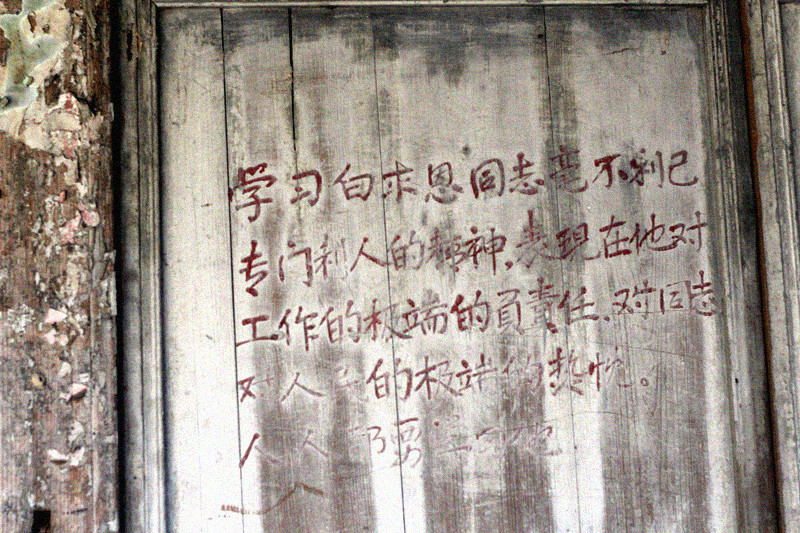 学习白求恩同志毫不利己
专门利人的精神,表现在他对
工作的极端的負責任,对同志
对人民的极端的热忱。
人人 要 他